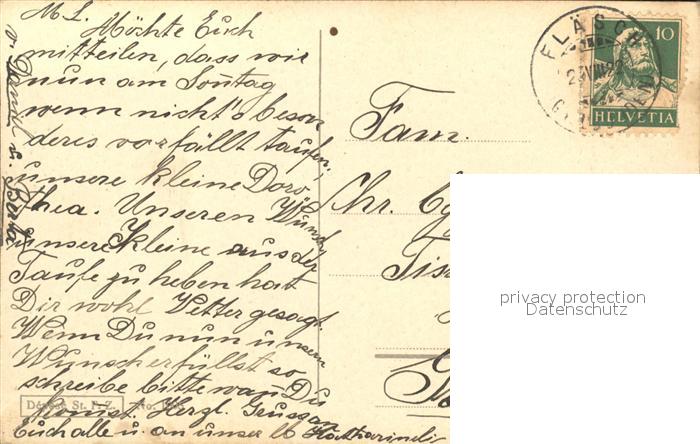 M L.
Möchte Euch
mitteilen, dass wir
nun am Sontag
wenn nicht's beson
deres vorfällt taufen,
unsere kleine Doro
thea. Unseren Wunsch,
unsere Kleine aus der
Taufe zu heben hat
Dir wohl Vetter gesagt.
Wenn Du nun unsern
Wunsch erfüllst so
schreibe bitte wan Du
komst. Herzl. Grüsse an
Euch alle u. an unser lb Katharineli
Fam.
Chr.
FLÄSCH
10
HELVETIA
privacy protection
Datenschutz